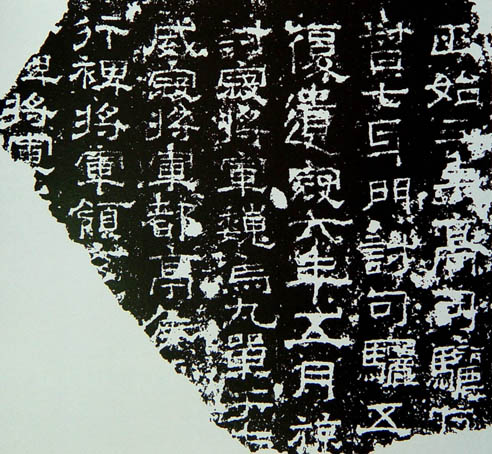 正始三年高句驪反
督七牙門討句驪五
復遺寇六年五月旋
討寇將軍巍烏丸單于
威寇將軍都亭侯
行裨將軍領
裨將軍